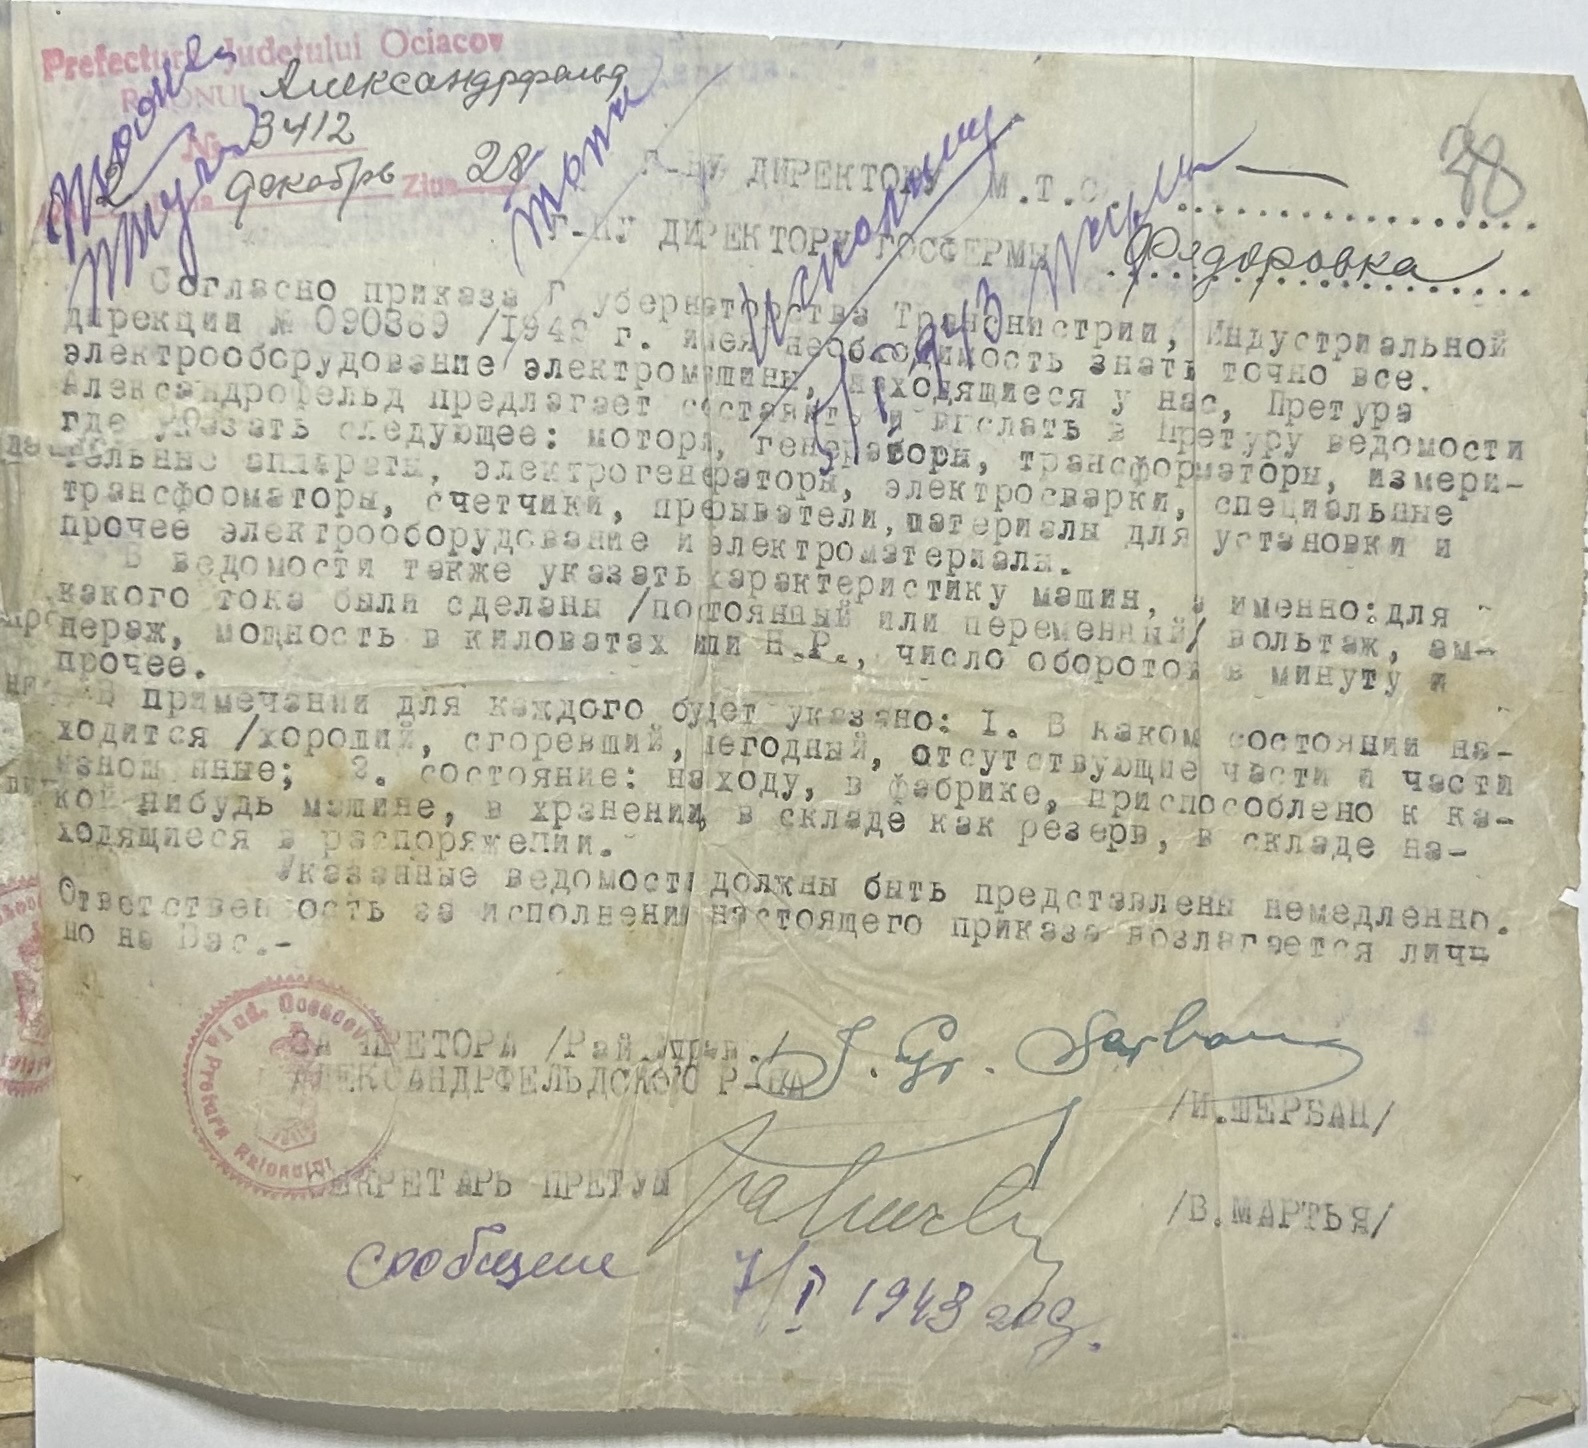 Prefectura Judetului Ociacov
Александрфельд
№ 3412
2 декабрь Ziua 28
38
Г-НУ ДИРЕКТОРУ М.Т.С.
Г-НУ ДИРЕКТОРУ ГОСФЕРМЫ Фядоровка
Согласно приказа Губернаторства Транснистрии, Индустриальной
дирекции № 090369 /1942 г. имея необходимость знать точно все.
электрооборудование электромашины, находящиеся у нас, Претура
Александрофельд предлагает составить и выслать в Претуру ведомости
где указать следующее: мотора, генераторы, трансформаторы, измери-
тельные аппараты, электрогенераторы, электросварки, специальные
трансформаторы, счетчики, прерыватели, материалы для установки и
прочее электрооборудование и электроматериалы.
В ведомости также указать характеристику машин, а именно: для
какого тока были сделаны /постоянный или переменный/ вольтаж, ам-
пераж, мощность в киловатах или Н.Р., число оборотов в минуту и
прочее.
В примечании для каждого будет указано: I. В каком состоянии на-
ходится /хороший, сгоревший, негодный, отсутствующие части и части
изношенные; 2. состояние: находу, в фабрике, приспособлено к ка-
кой нибудь машине, в хранении, в складе как резерв, в складе на-
ходящиеся в распоряжении.
Указанные ведомости должны быть представлены немедленно.
Ответственность за исполнения настоящего приказа возлагается личн
но на Вас.-
ЗА ПРЕТОРА /Рай.Управ./
J. Gr. Serban
АЛЕКСАНДРФЕЛЬДСКОГО Р-НА
/И.ШЕРБАН/
СЕКРЕТАРЬ ПРЕТУРЫ
/В.МАРТЬЯ/
сообщение 7/I 1943 год.